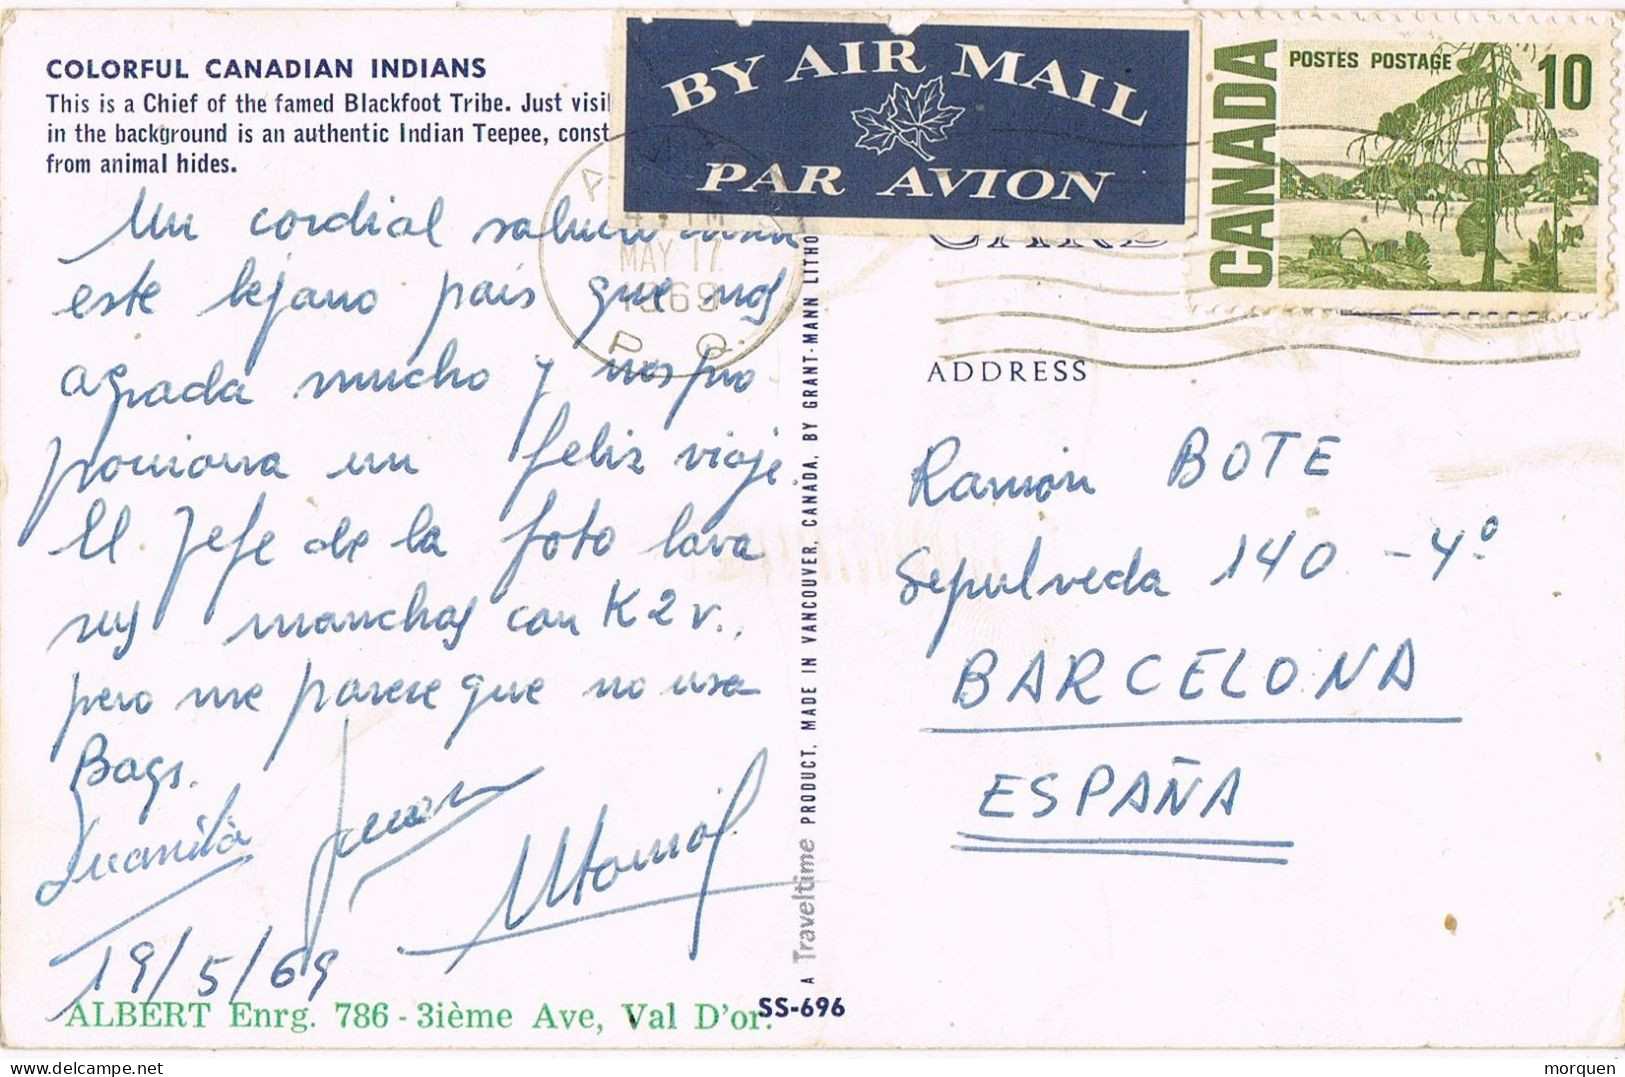 COLORFUL CANADIAN INDIANS
This is a Chief of the famed Blackfoot Tribe. Just visi
in the background is an authentic Indian Teepee, const
from animal hides.
BY AIR MAIL
PAR AVION
CANADA
POSTES POSTAGE 10
PM
MAY 17
1969
P. Q.
Un cordial saludo desde
este lejano país que nos
agrada mucho y nos pro
porciona un feliz viaje.
El Jefe de la foto lava
sus manchas con K2r.,
pero me parece que no usa
Bags.
Juanita Juan
19/5/69
ALBERT Enrg. 786 - 3ième Ave, Val D'or.
SS-696
A Traveltime PRODUCT. MADE IN VANCOUVER, CANADA, BY GRANT-MANN LITHO
CARD
ADDRESS
Ramón BOTE
Sepulveda 140 - 4º
BARCELONA
ESPAÑA
morquen